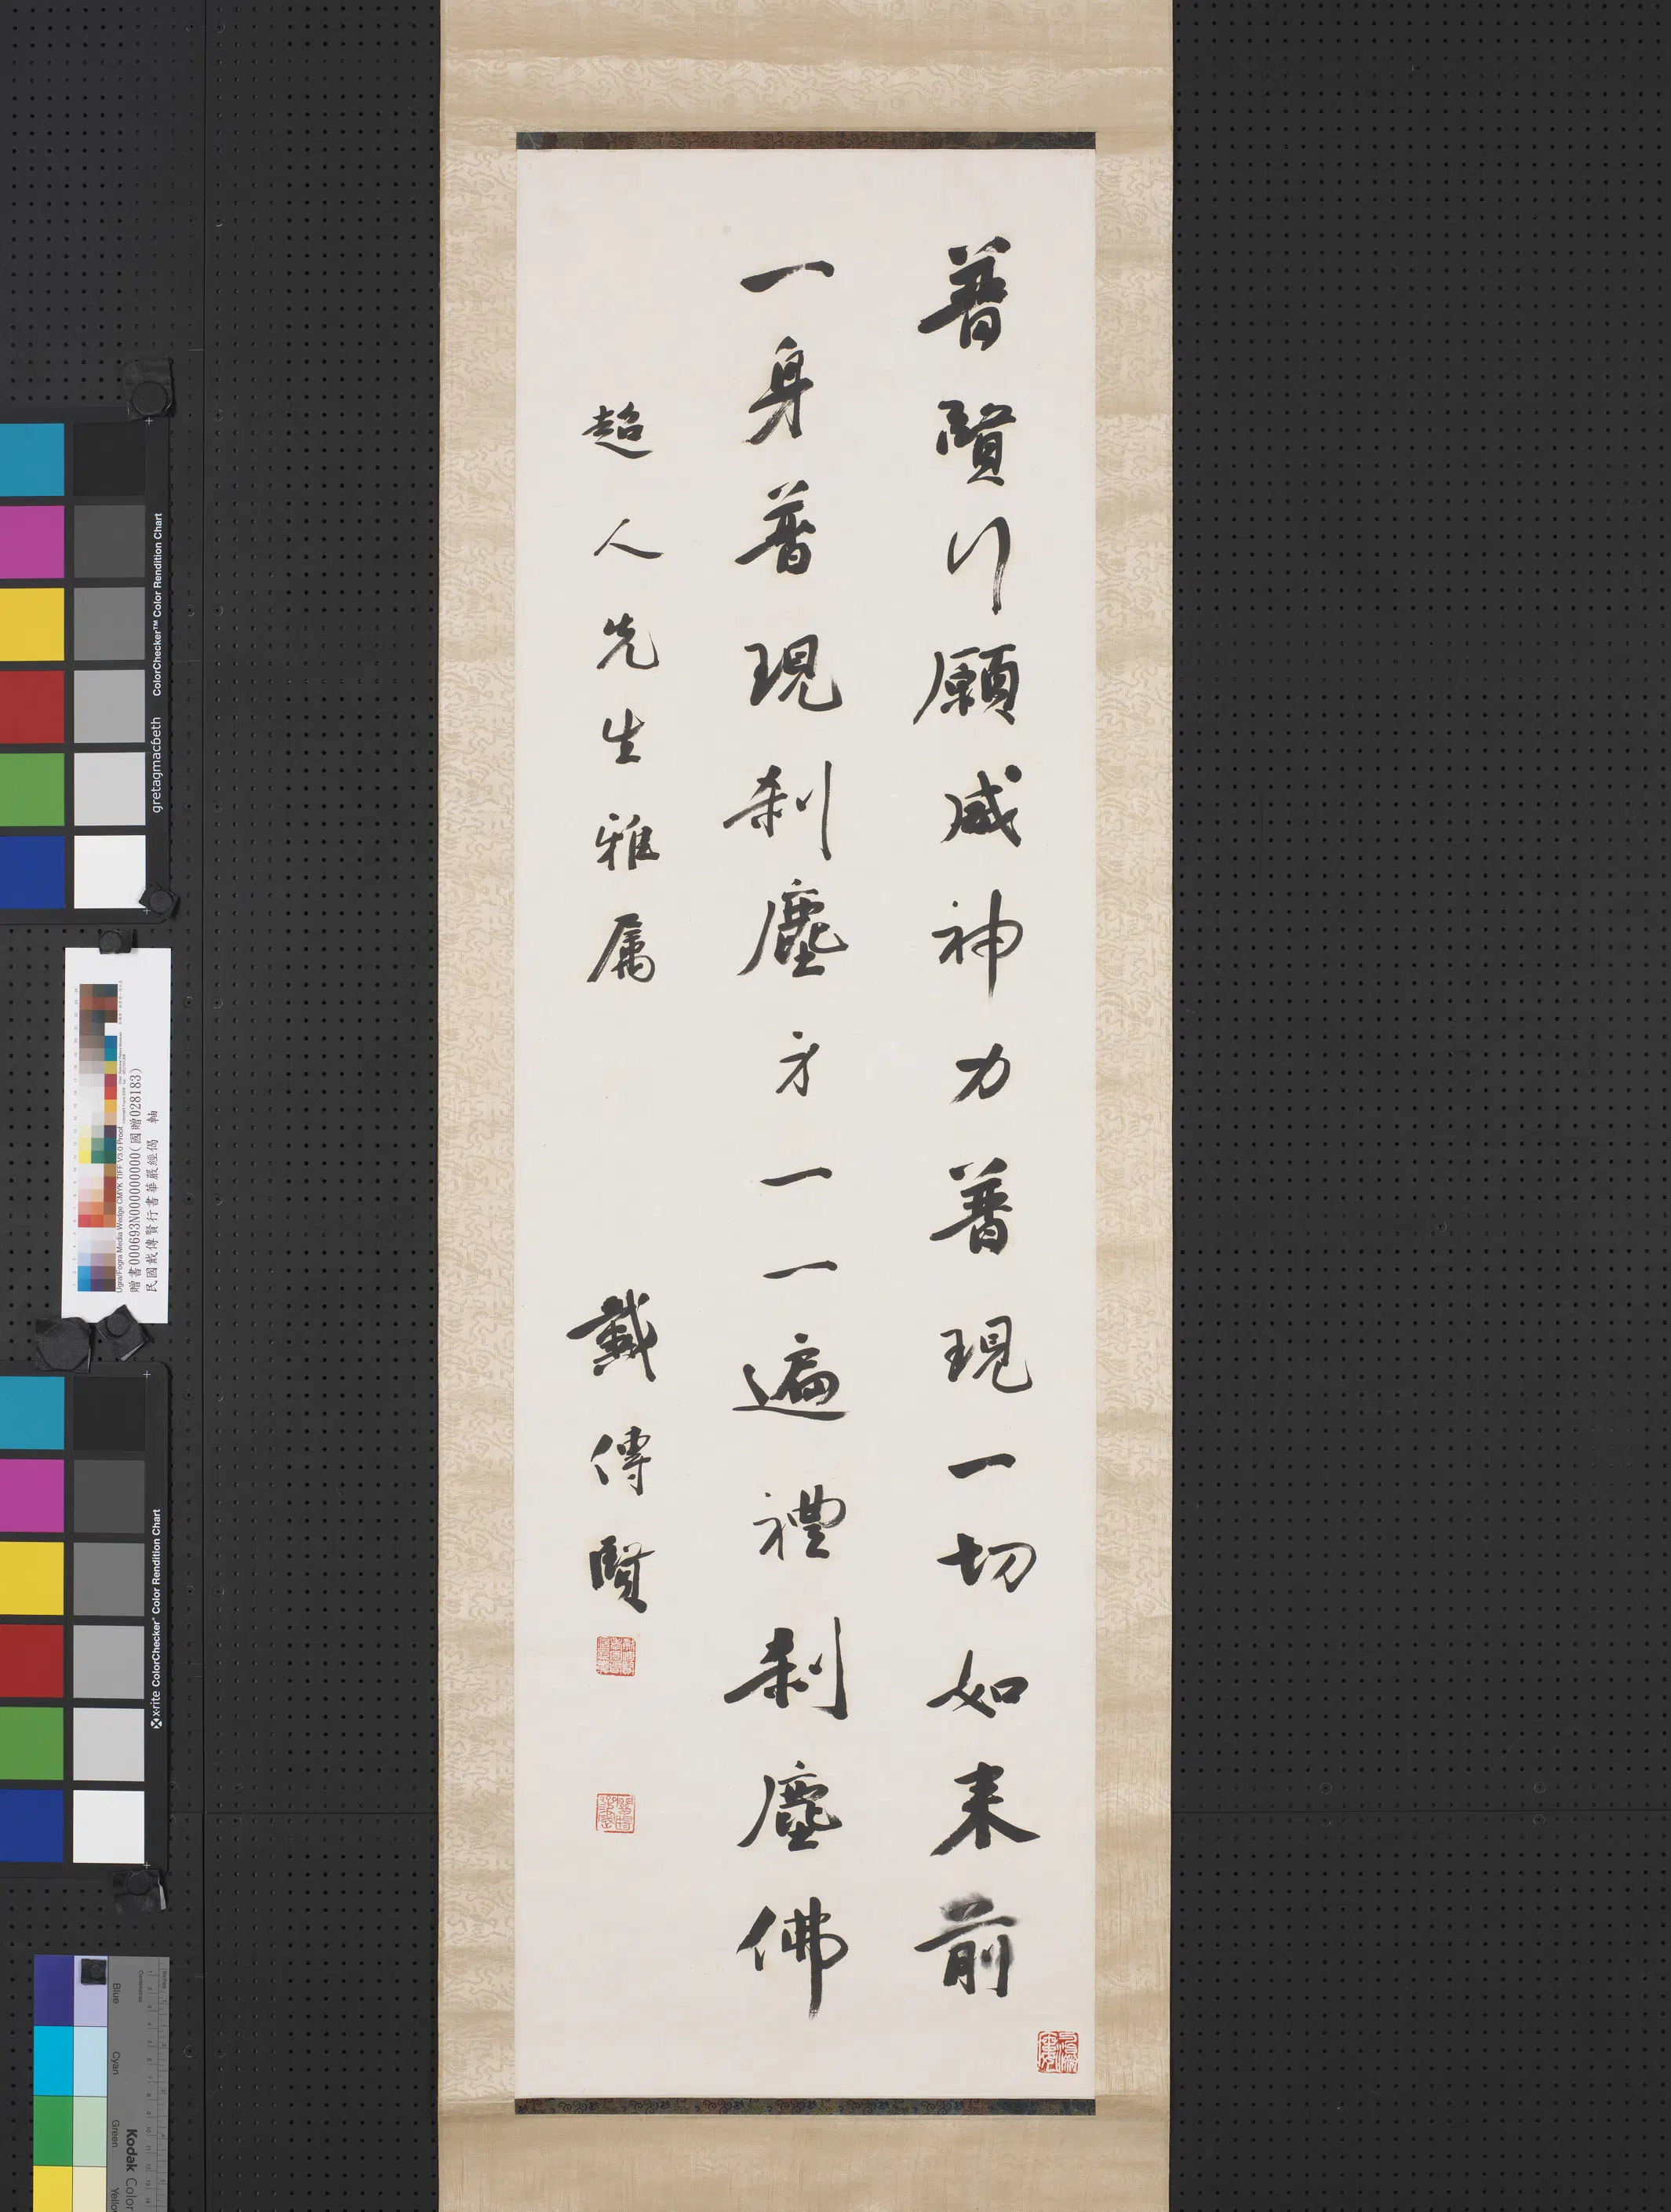 普賢行願威神力普現一切如来前
一身普現刹塵身一一遍禮刹塵佛
超人先生雅屬
戴傳賢
gretagmacbeth ColorChecker™ Color Rendition Chart
Ugra/Fogra Media Wedge CMYK TIFF V3.0 Proof
贈書000693N000000000(國贈028183)
民國戴傳賢行書華嚴經偈 軸
x·rite ColorChecker® Color Rendition Chart
Blue
Cyan
Green
Kodak Color